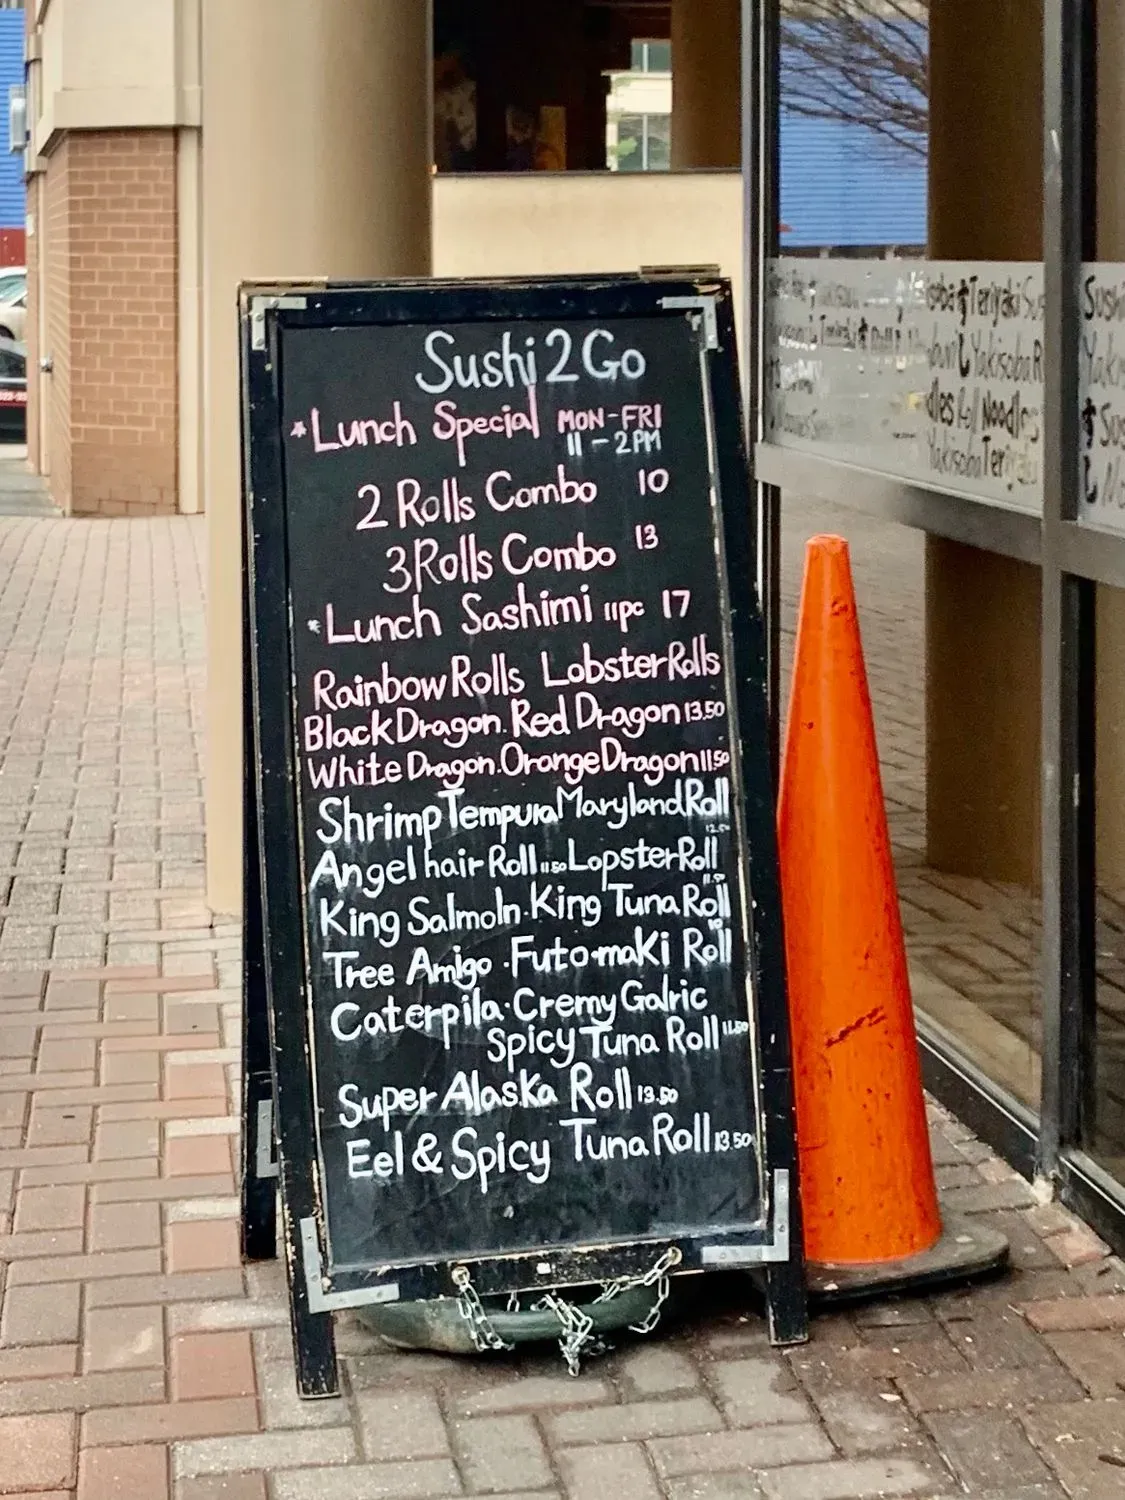 Sushi 2 Go
*Lunch Special MON-FRI
11-2PM
2 Rolls Combo 10
3 Rolls Combo 13
*Lunch Sashimi 11pc 17
Rainbow Rolls Lobster Rolls
Black Dragon. Red Dragon 13.50
White Dragon. Orange Dragon 11.50
Shrimp Tempura Maryland Roll
Angel hair Roll 11.50 Lopster Roll
11.50
King Salmoln. King Tuna Roll
10
Tree Amigo. Futo-maki Roll
Caterpila. Cremy Galric
Spicy Tuna Roll 11.50
Super Alaska Roll 13.50
Eel & Spicy Tuna Roll 13.50
Teriyaki
Yakisoba
Noodles
Yakisoba Teriyaki